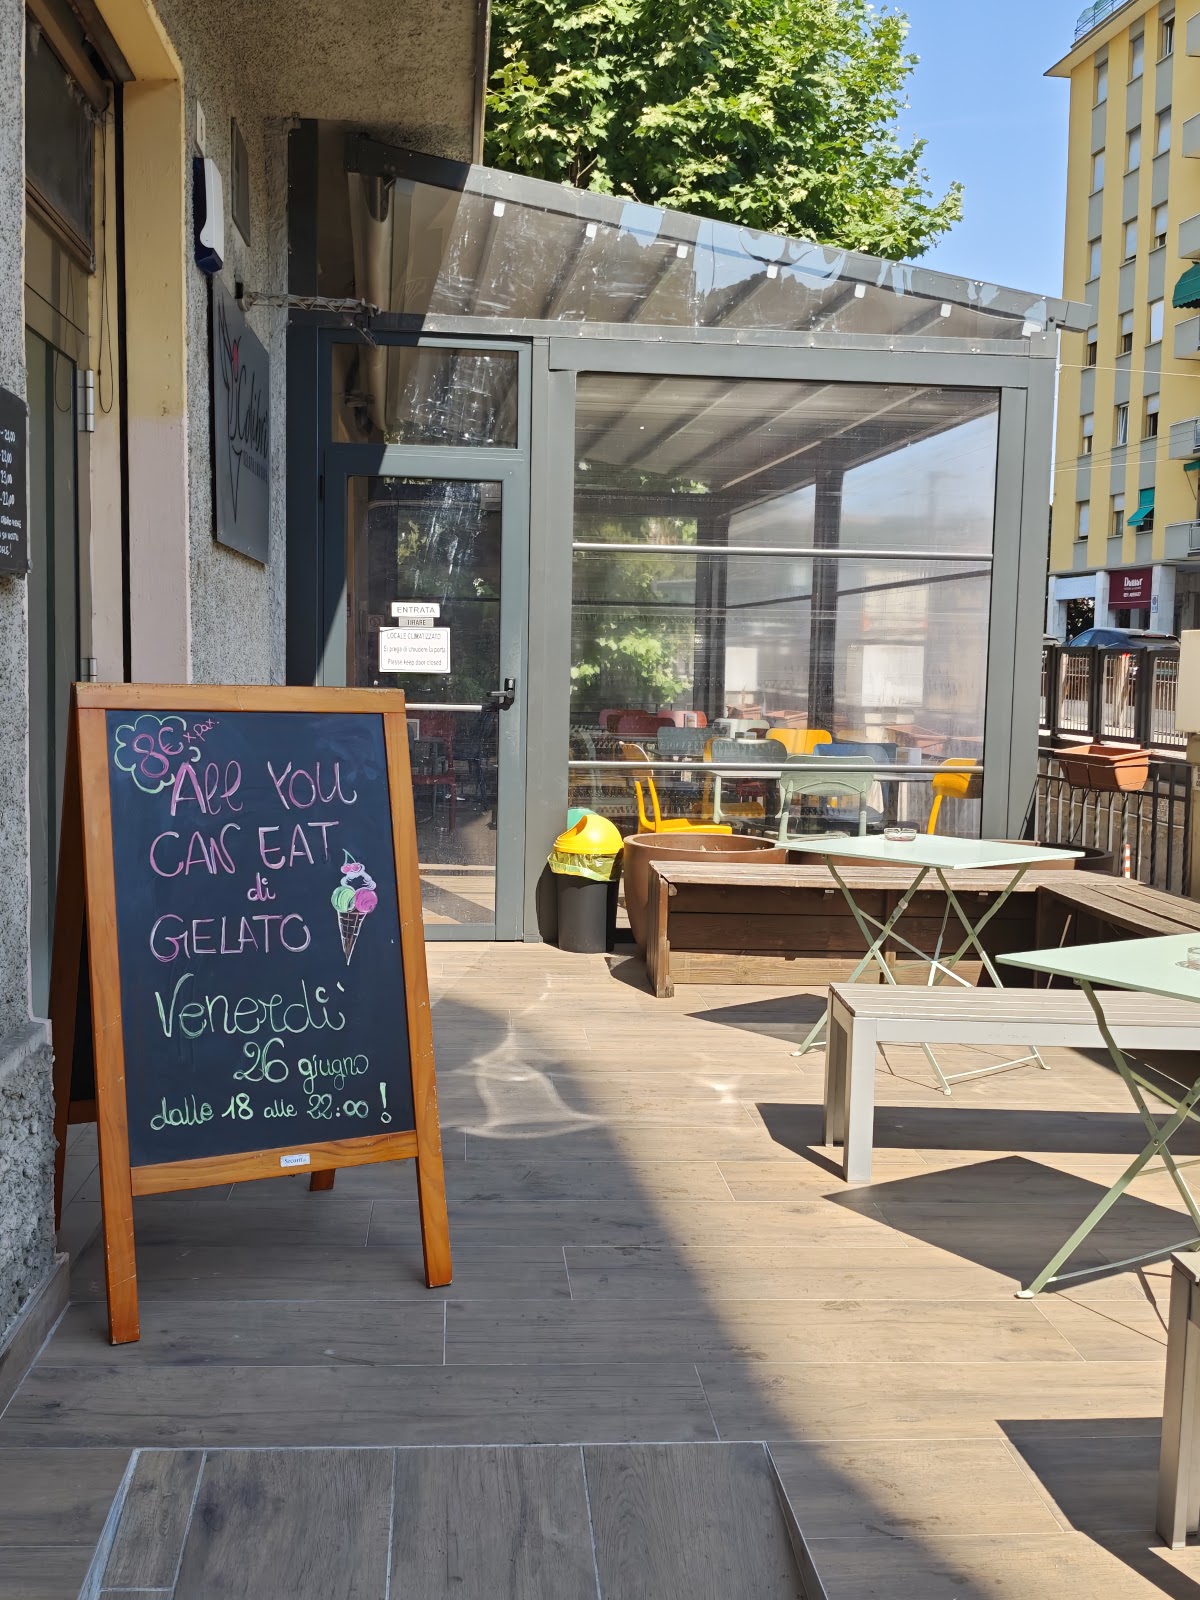 8€ x pax.
All YOU
CAN EAT
di
GELATO
Venerdì
26 giugno
dalle 18 alle 22:00!
Securit
Colibrì
ENTRATA
TIRARE
LOCALE CLIMATIZZATO
Si prega di chiudere la porta
Please keep door closed